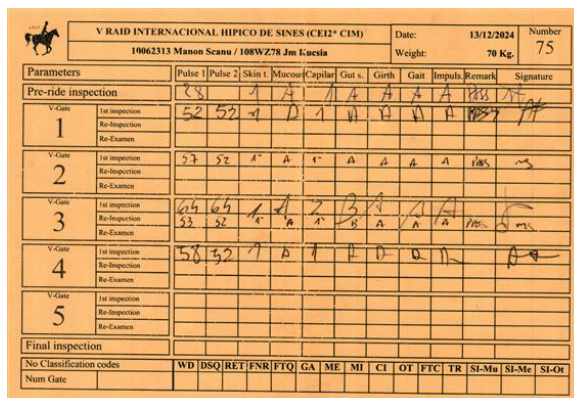 V RAID INTERNACIONAL HIPICO DE SINES (CEI2* CIM)
10062313 Manon Scanu / 108WZ78 Jm Kucsia
Date: 13/12/2024
Weight: 70 Kg.
Number
75
Parameters Pulse 1 Pulse 2 Skin t. Mucous Capilar Gut s. Girth Gait Impuls. Remark Signature
Pre-ride inspection 28 1 A 1 A A A A Pass
V-Gate 1 1st inspection 52 52 1 A 1 A A A A Pass
Re-Inspection
Re-Examen
V-Gate 2 1st inspection 57 52 1" A 1" A A A A Pass
Re-Inspection
Re-Examen
V-Gate 3 1st inspection 64 64 1 A 2 B A A A
Re-Inspection 53 52 1" A 1" B A A A Pass
Re-Examen
V-Gate 4 1st inspection 58 52 1 A 1 A A A A
Re-Inspection
Re-Examen
V-Gate 5 1st inspection
Re-Inspection
Re-Examen
Final inspection
No Classification codes WD DSQ RET FNR FTQ GA ME MI CI OT FTC TR SI-Mu SI-Me SI-Ot
Num Gate